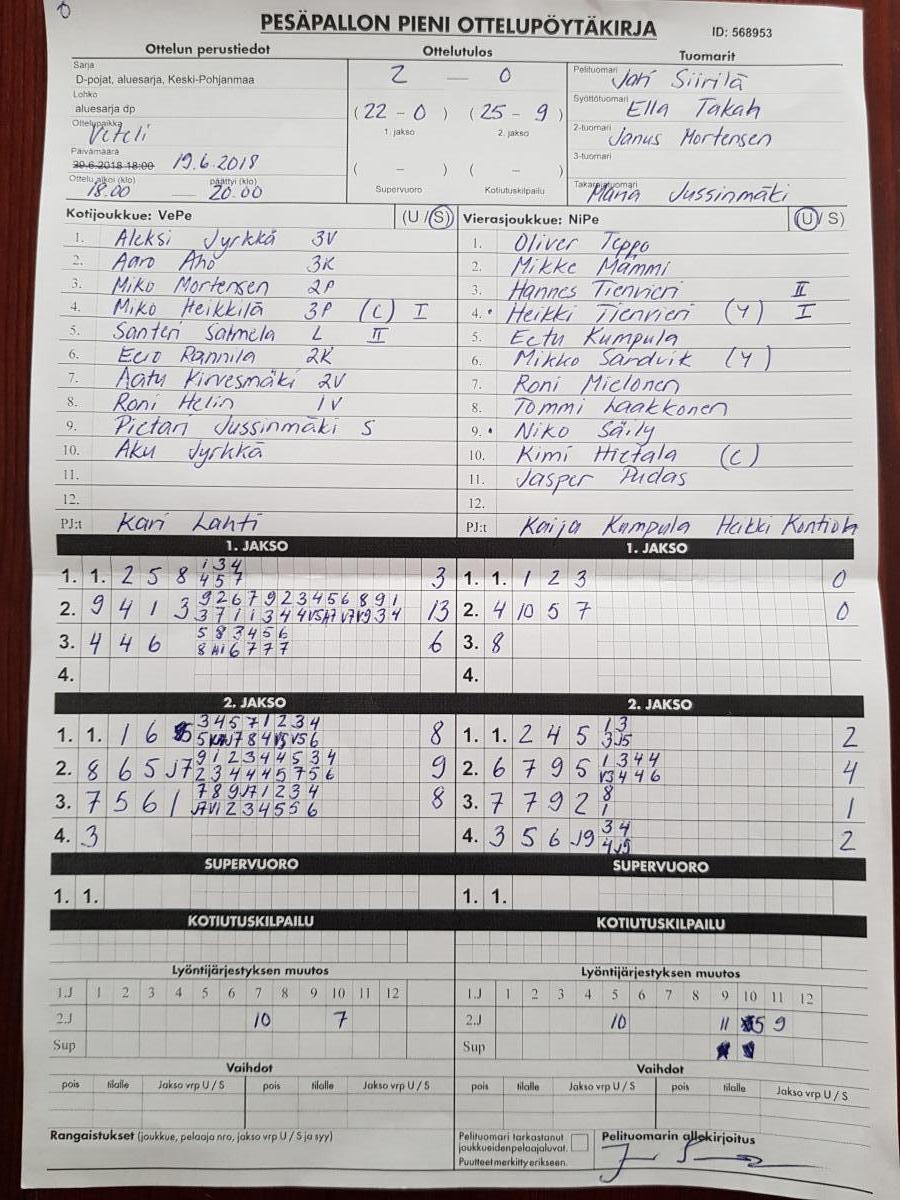 PESÄPALLON PIENI OTTELUPÖYTÄKIRJA
ID: 568953
Ottelun perustiedot
Ottelutulos
Tuomarit
Sarja
D-pojat, aluesarja, Keski-Pohjanmaa
Lohko
aluesarja dp
Ottelupaikka
Veteli
Päivämäärä
20.6.2018 18:00 19.6.2018
Ottelu alkoi (klo) päättyi (klo)
18.00 — 20.00
2 — 0
(22 - 0) (25 - 9)
1. jakso 2. jakso
( - ) ( - )
Supervuoro Kotiutuskilpailu
Pelituomari Jari Siirilä
Syöttötuomari Ella Takah
2-tuomari Janus Mortensen
3-tuomari
Takarajatuomari Jussinmäki
Kotijoukkue: VePe (U / S)
1. Aleksi Jyrkkä 3V
2. Aaro Aho 3K
3. Miko Mortensen 2P
4. Miko Heikkilä 3P (C) I
5. Santeri Salmela L II
6. Eero Rannila 2K
7. Aatu Kirvesmäki 2V
8. Roni Helin 1V
9. Pietari Jussinmäki S
10. Aku Jyrkkä
11.
12.
PJ:t Kari Lahti
Vierasjoukkue: NiPe (U / S)
1. Oliver Teppo
2. Mikke Mämmi
3. Hannes Tienvieri II
4. • Heikki Tienvieri (Y) I
5. Eetu Kumpula
6. Mikko Sandvik (Y)
7. Roni Mielonen
8. Tommi Laakkonen
9. • Niko Säily
10. Kimi Hietala (C)
11. Jasper Pudas
12.
PJ:t Kaija Kumpula Heikki
1. JAKSO
1. 1. 2 5 8 1 3 4 3
4 5 7
2. 9 4 1 3 9 2 6 7 9 2 3 4 5 6 8 9 1 13
3. 4 4 6 5 8 3 4 5 6 6
4.
1. JAKSO
1. 1. 1 2 3 0
2. 4 10 5 7 0
3. 8
4.
2. JAKSO
1. 1. 1 6 3 4 5 7 1 2 3 4 8
2. 8 6 5 J7 9 1 2 3 4 4 5 3 4 9
2 3 4 4 4 5 7 5 6
3. 7 5 6 1 7 8 9 J7 1 2 3 4 8
4. 3
2. JAKSO
1. 1. 2 4 5 1 3 2
3 J5
2. 6 7 9 5 1 3 4 4 4
V3 4 4 6
3. 7 7 9 2 8 1
1
4. 3 5 6 J9 3 4 2
4 J9
SUPERVUORO
1. 1.
SUPERVUORO
1. 1.
KOTIUTUSKILPAILU
KOTIUTUSKILPAILU
Lyöntijärjestyksen muutos
1.J 1 2 3 4 5 6 7 8 9 10 11 12
2.J 10 7
Sup
Lyöntijärjestyksen muutos
1.J 1 2 3 4 5 6 7 8 9 10 11 12
2.J 10 11 5 9
Sup
Vaihdot
pois tilalle Jakso vrp U / S pois tilalle Jakso vrp U / S
Vaihdot
pois tilalle Jakso vrp U / S pois tilalle Jakso vrp U / S
Rangaistukset (joukkue, pelaaja nro, jakso vrp U / S ja syy)
Pelituomari tarkastanut
joukkueidenpelaajaluvat.
Puutteet merkitty erikseen.
Pelituomarin allekirjoitus